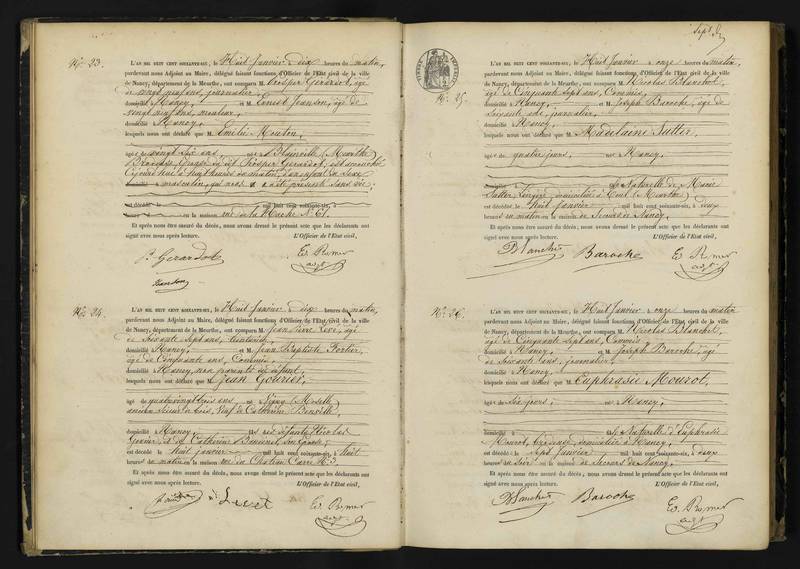 Nº 23.
L'AN MIL HUIT CENT SOIXANTE-SIX, le Huit Janvier, dix heures du matin,
pardevant nous Adjoint au Maire, délégué faisant fonctions d'Officier de l'Etat civil de la ville
de Nancy, département de la Meurthe, ont comparu M. Prosper Gerardot, âgé
de vingt neuf ans, journalier
domicilié à Nancy, et M. Ernest Jeanson, âgé de
vingt neuf ans,
domicilié à Nancy,
lesquels nous ont déclaré que M. Emilie Mouton,
âgée de vingt six ans, née à Blainville (Meurthe)
Prosper Gerardot, est accouchée
aujourd'hui à huit heures du matin, d'un enfant du sexe
masculin, qui nous a été présenté sans vie;
est décédé le mil huit cent soixante-six, à
heures du en la maison rue de la Hache Nº 61.
Et après nous être assuré du décès, nous avons dressé le présent acte que les déclarants ont
signé avec nous après lecture. L'Officier de l'Etat civil,
P. Gerardot
Jeanson
Ed. Remer
adjt
Nº 24.
L'AN MIL HUIT CENT SOIXANTE-SIX, le Huit Janvier, dix heures du matin,
pardevant nous Adjoint au Maire, délégué faisant fonctions d'Officier de l'Etat civil de la ville
de Nancy, département de la Meurthe, ont comparu M. Jean Pierre, âgé
de Soixante Sept ans,
domicilié à Nancy, et M. Jean Baptiste Fortier,
âgé de Cinquante ans, Commis,
domicilié à Nancy, non parents du défunt,
lesquels nous ont déclaré que M. Jean Gouvier,
âgé de quatre vingt trois ans, né à Vigny (Moselle)
ancien Scieur de bois, Veuf de Catherine
domicilié à Nancy, fils des défunts Nicolas
et de Catherine son épouse;
est décédé le huit janvier mil huit cent soixante-six, à sept
heures du matin en la maison rue du Château Carré Nº 3
Et après nous être assuré du décès, nous avons dressé le présent acte que les déclarants ont
signé avec nous après lecture. L'Officier de l'Etat civil,
Ed. Remer
adjt
Sept.
Nº 25.
L'AN MIL HUIT CENT SOIXANTE-SIX, le Huit Janvier, onze heures du matin,
pardevant nous Adjoint au Maire, délégué faisant fonctions d'Officier de l'Etat civil de la ville
de Nancy, département de la Meurthe, ont comparu M. Nicolas Blanchet,
âgé de Cinquante Sept ans, Commis,
domicilié à Nancy, et M. Joseph Baroche, âgé de
Soixante ans, journalier,
domicilié à Nancy,
lesquels nous ont déclaré que M. Madelaine Sutter,
âgée de quatre jours, née à Nancy,
fille Naturelle de Marie
Sutter, Lingère, domiciliée à Toul (Meurthe)
est décédée le Huit Janvier mil huit cent soixante-six, à deux
heures du matin en la maison de Secours de Nancy,
Et après nous être assuré du décès, nous avons dressé le présent acte que les déclarants ont
signé avec nous après lecture. L'Officier de l'Etat civil,
Blanchet
Baroche
Ed. Remer
adjt
Nº 26.
L'AN MIL HUIT CENT SOIXANTE-SIX, le Huit Janvier, onze heures du matin
pardevant nous Adjoint au Maire, délégué faisant fonctions d'Officier de l'Etat civil de la ville
de Nancy, département de la Meurthe, ont comparu M. Nicolas Blanchet,
âgé de Cinquante Sept ans, Commis
domicilié à Nancy, et M. Joseph Baroche, âgé
de Soixante ans, journalier,
domicilié à Nancy,
lesquels nous ont déclaré que M. Euphrasie Mourot,
âgée de Six jours, née à Nancy,
fille Naturelle d'Euphrasie
Mourot, Brodeuse, domiciliée à Nancy,
est décédée le Sept Janvier mil huit cent soixante-six, à deux
heures du soir en la maison de Secours de Nancy,
Et après nous être assuré du décès, nous avons dressé le présent acte que les déclarants ont
signé avec nous après lecture. L'Officier de l'Etat civil,
Blanchet
Baroche
Ed. Remer
adjt